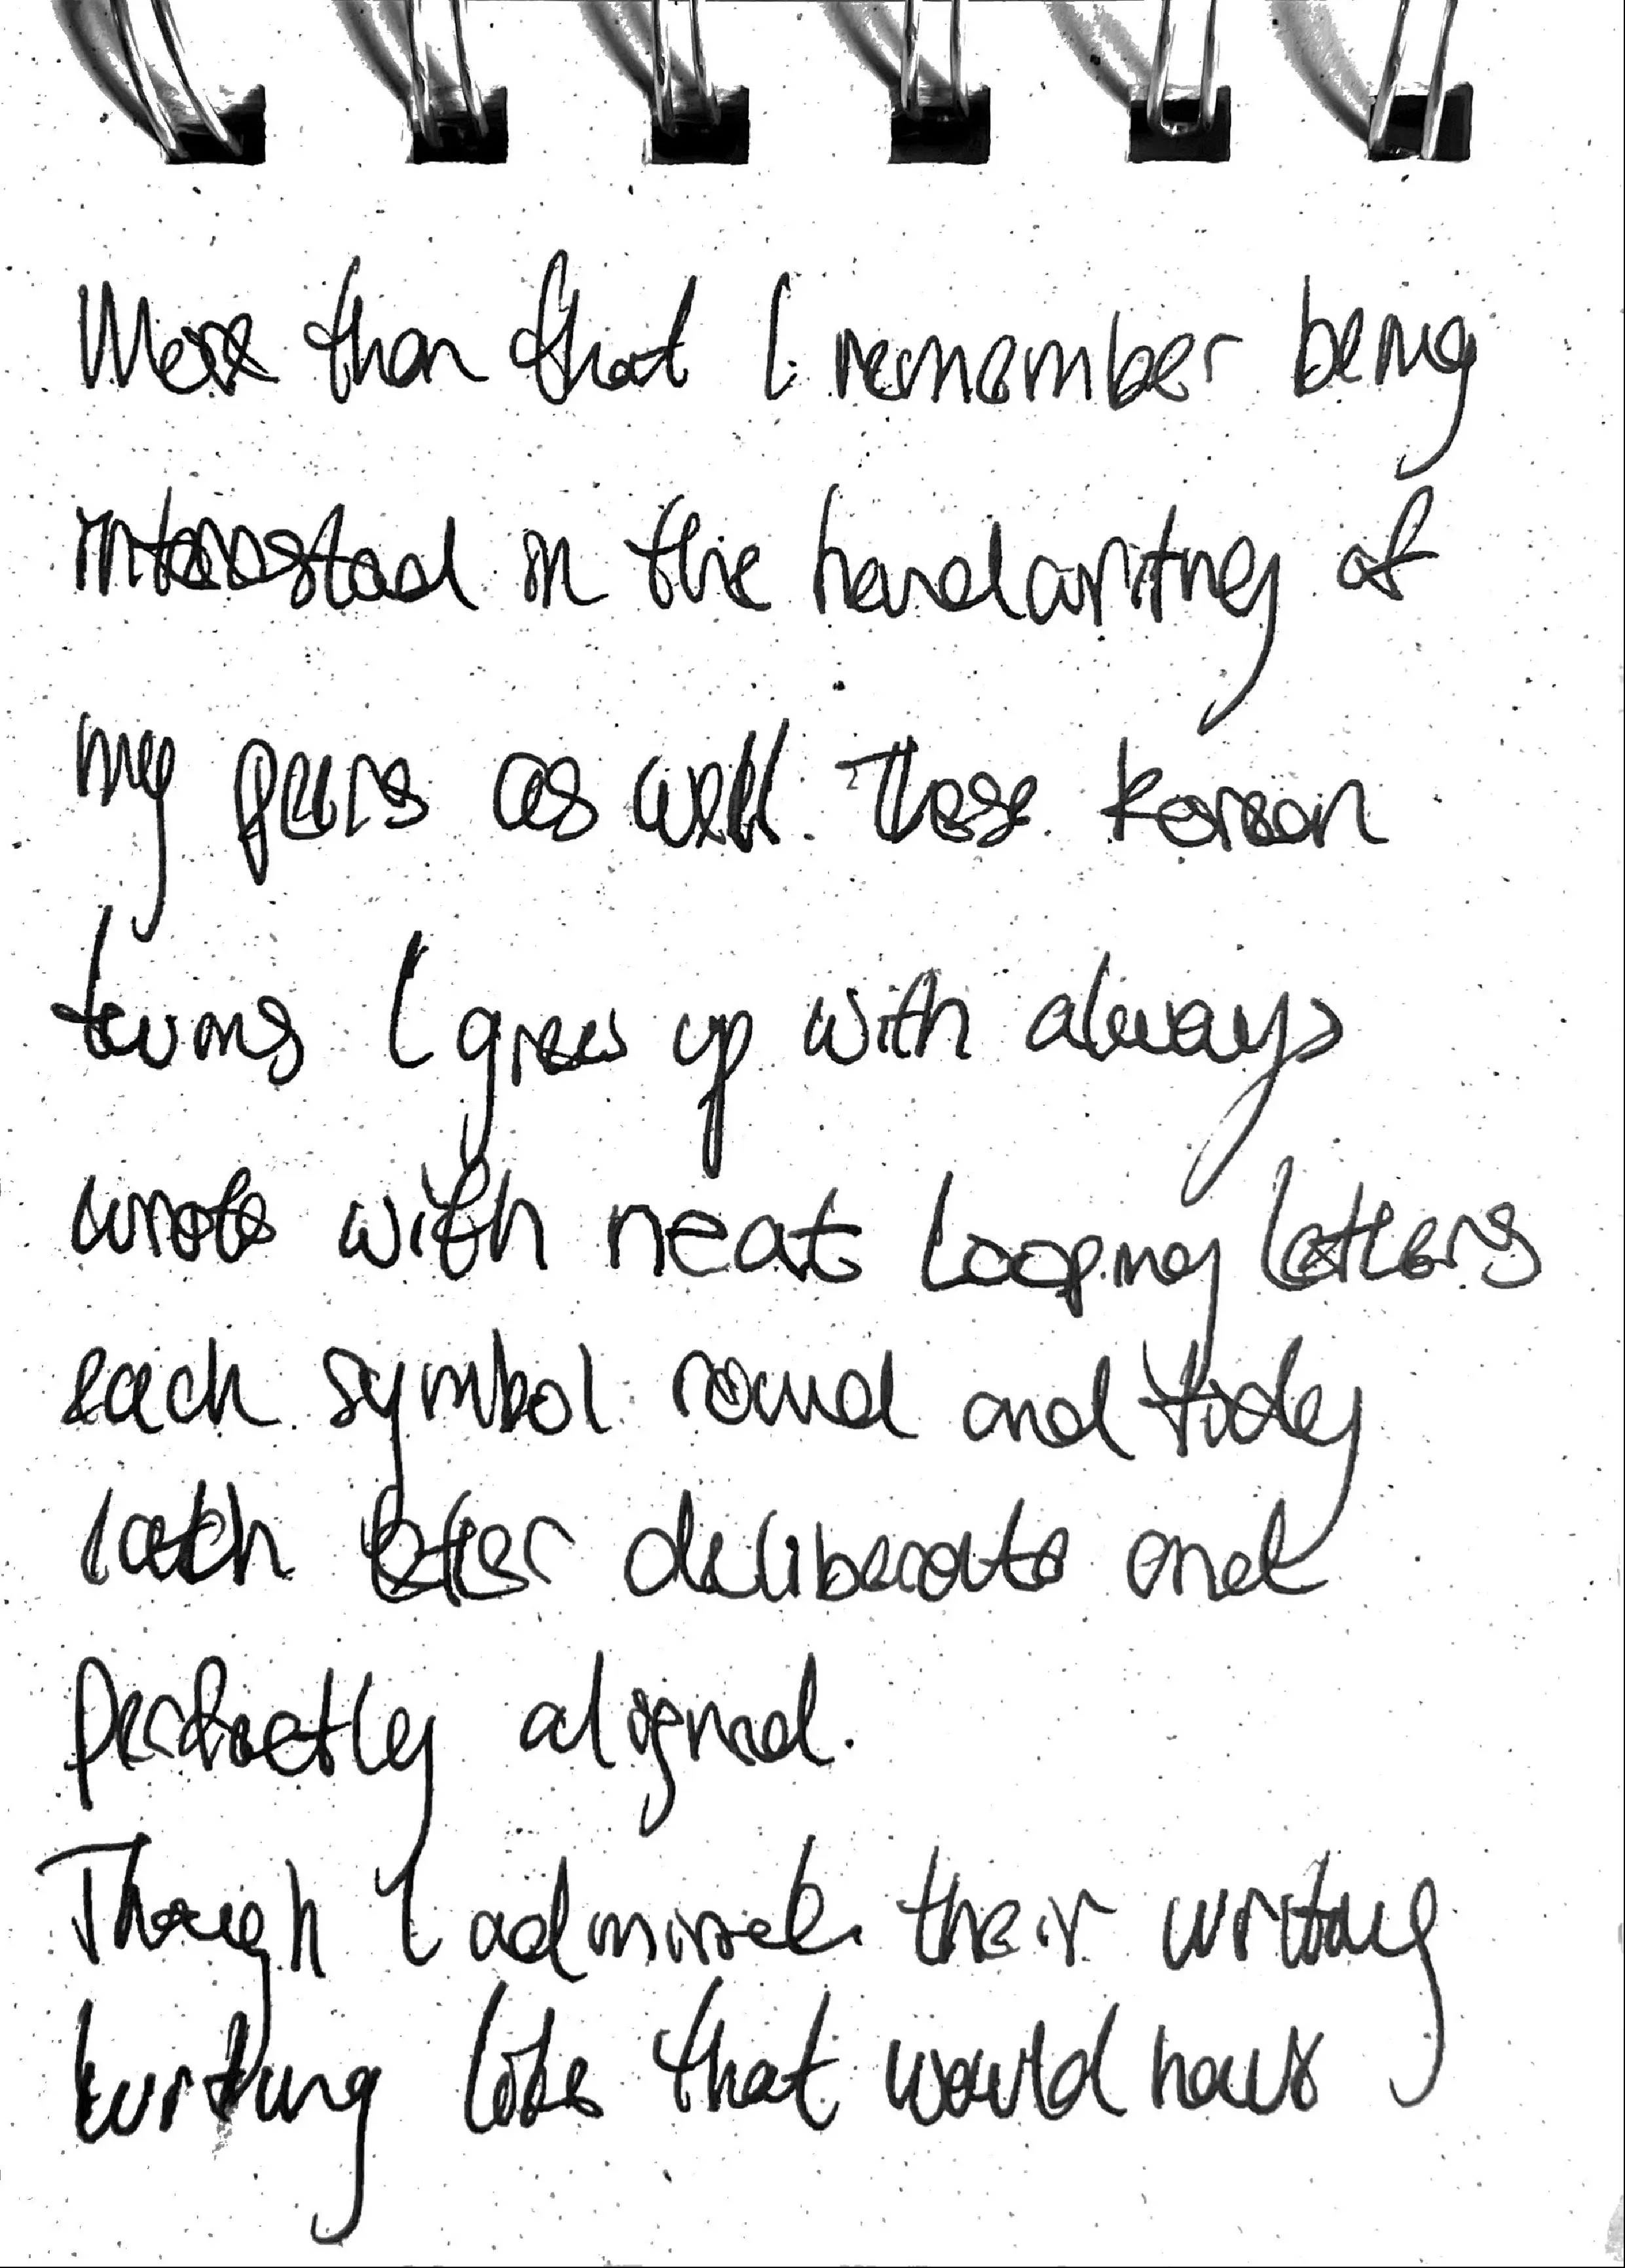 More than that I remember being
interested in the handwriting of
my peers as well. These Korean
twins I grew up with always
wrote with neat looping letters
each symbol round and tidy
each letter deliberate and
perfectly aligned.
Though I admired their writing
writing like that would have